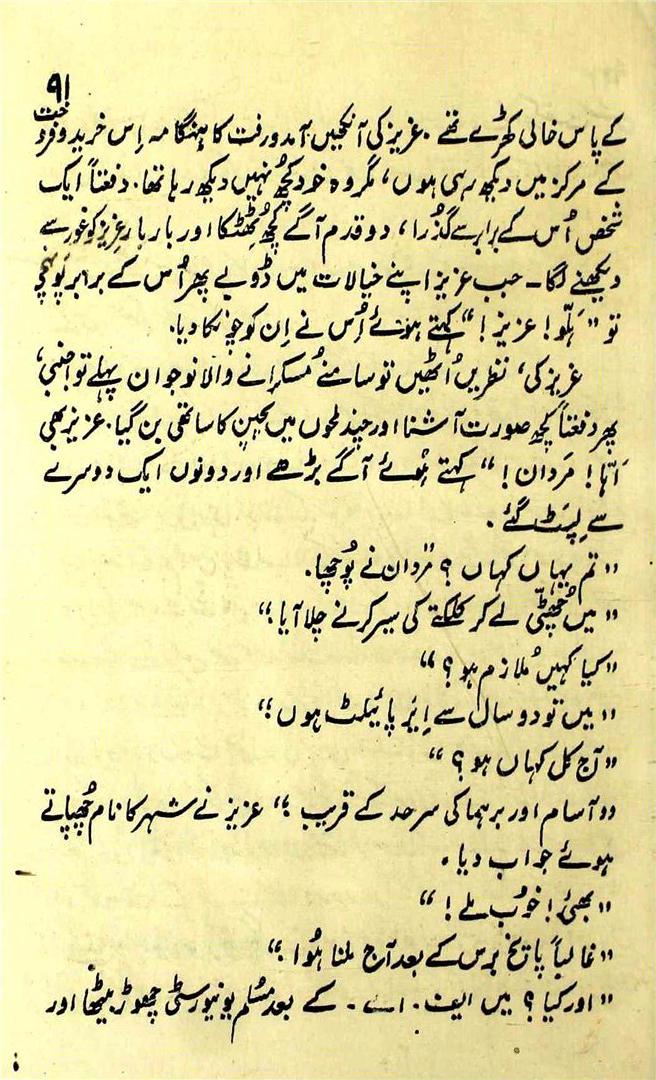 ۹۱
کے پاس خالی کھڑے تھے۔ عزیز کی آنکھیں آمدورفت کا ہنگامہ اِس خرید و فروخت
کے مرکز میں دیکھ رہی ہوں، مگر وہ خود کچھ نہیں دیکھ رہا تھا۔ دفعتاً ایک
شخص اُس کے برابر سے گذُرا، دو قدم آگے کچھ ٹھٹکا اور بار بار عزیز کو غور سے
دیکھنے لگا۔ جب عزیز اپنے خیالات میں ڈوبے پھر اُس کے برابر پہنچے
تو "ہَلّو! عزیز!" کہتے ہوئے اُس نے اِن کو چونکا دیا۔
عزیز کی، نظریں اُٹھیں تو سامنے مُسکرانے والا نوجوان پہلے تو اجنبی،
پھر دفعتاً کچھ صورت آشنا اور چند لمحوں میں بچپن کا ساتھی بن گیا۔ عزیز بھی
اَہّا! مَردان!" کہتے ہُوئے آگے بڑھے اور دونوں ایک دوسرے
سے لِپَٹ گئے۔
"تم یہاں کہاں؟ مَردان نے پُوچھا۔
"میں چُھٹّی لے کر کلکتے کی سیر کرنے چلا آیا؛"
"کیا کہیں مُلازم ہو؟"
"میں تو دو سال سے اِیَر پائیلٹ ہوں؛"
"آج کل کہاں ہو؟"
"آسام اور برہما کی سرحد کے قریب؛" عزیز نے شہر کا نام چُھپاتے
ہوئے جواب دیا۔
"بھئی! خوُب ملے!"
"غالباً پانچ برس کے بعد آج ملنا ہُوا؛"
"اور کیا؟ میں ایف۔ اے۔ کے بعد مُسلم یونیورسٹی چھوڑ بیٹھا اور